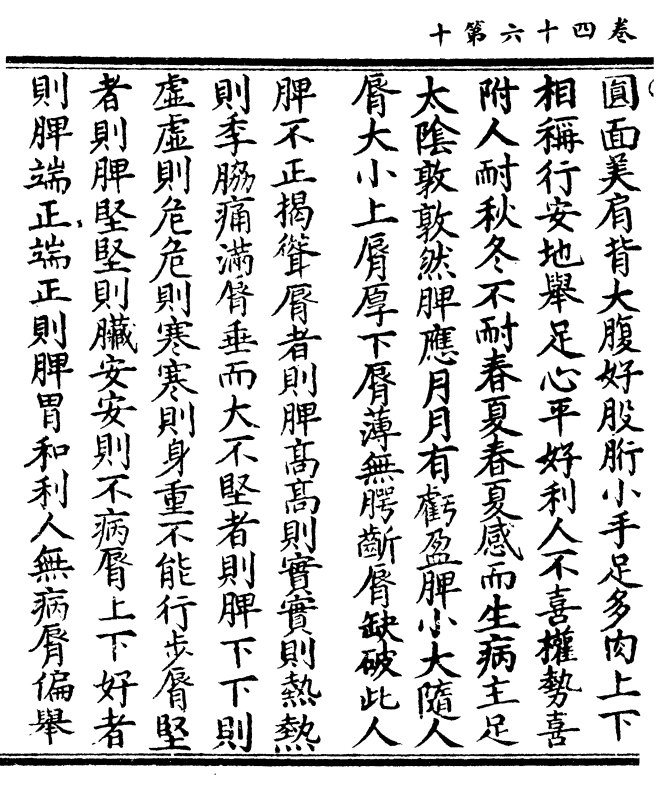 卷四十六第十
圓面美肩背大腹好股胻小手足多肉上下
相稱行安地舉足心平好利人不喜權勢喜
附人耐秋冬不耐春夏春夏感而生病主足
太陰敦敦然脾應月月有虧盈脾小大隨人
脣大小上脣厚下脣薄無腭齗脣缺破此人
脾不正揭聳脣者則脾高高則實實則熱熱
則季脇痛滿脣垂而大不堅者則脾下下則
虛虛則危危則寒寒則身重不能行步脣堅
者則脾堅堅則臟安安則不病脣上下好者
則脾端正端正則脾胃和利人無病脣偏舉